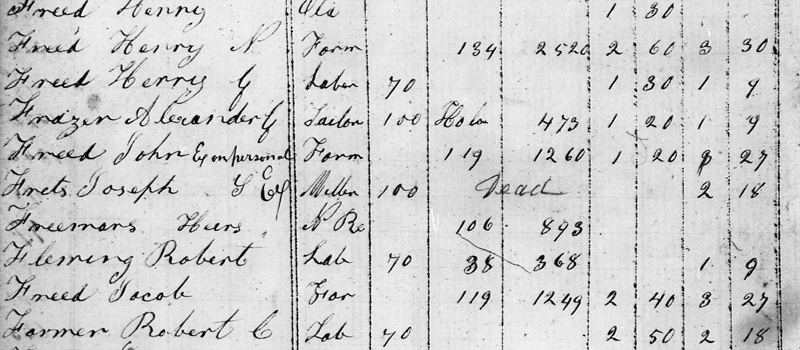 Freed Henry Cla 1 30
Freed Henry N Farm 134 2520 2 60 3 30
Freed Henry G Labor 70 1 30 1 9
Frazer Alexander G Tailor 100 473 1 20 1 9
Freed John Ex on personal Farm 119 1260 1 20 3 27
Frets Joseph S Ex Miller 100 Dead 2 18
Freemans Heirs N Re 106 893
Fleming Robert Lab 70 38 368 1 9
Freed Jacob Far 119 1249 2 40 3 27
Farmer Robert C Lab 70 2 50 2 18